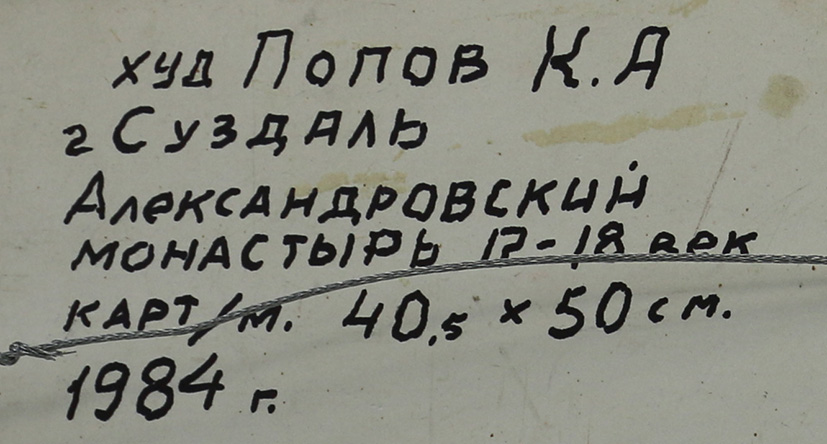 худ Попов К. А
г Суздаль
Александровский
монастырь 17-18 век
карт/м. 40,5 х 50 см.
1984 г.